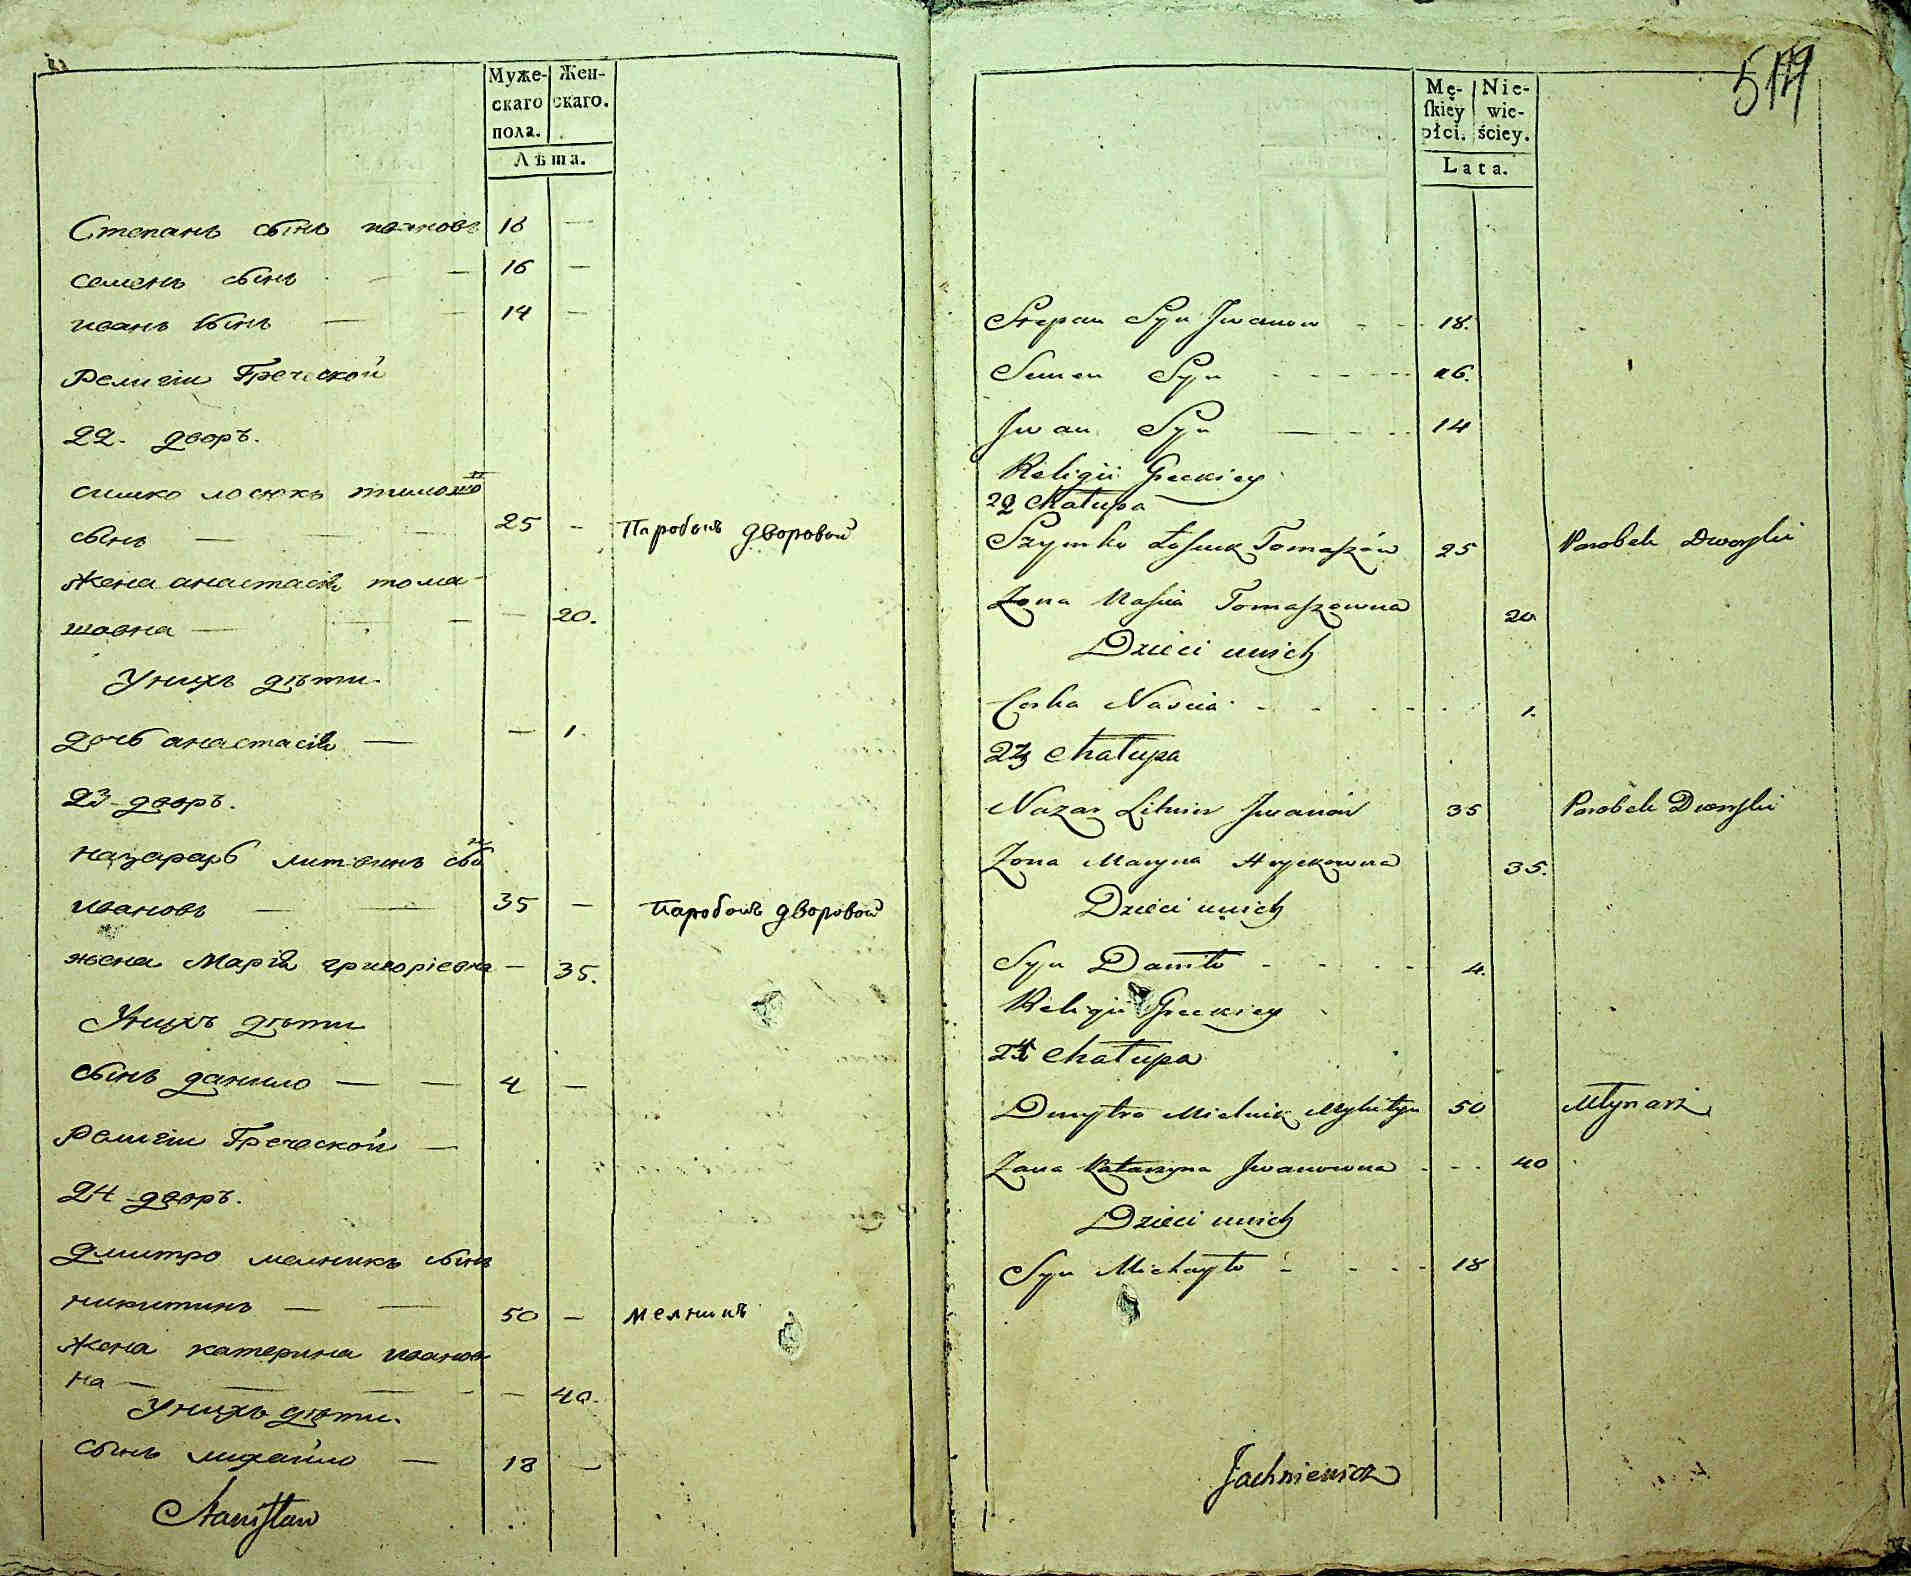 Муже-
скаго
пола.
Жен-
скаго.
Лѣта.
Степанъ сынъ ивановъ 18 —
семенъ сынъ — 16 —
иванъ сынъ — — 14 —
Религіи Греческой
22. дворъ.
симко лосюкъ
сынъ — — — 25 - Паробокъ дворовой
жена анастасія тома-
шовна — — — — 20.
У нихъ дѣти.
дочь анастасія — — 1.
23 дворъ.
литвинъ
ивановъ — — 35 — Паробокъ дворовой
жена Марія григоріевна — 35.
У нихъ дѣти
сынъ данило — — 4 —
Религіи Греческой —
24 дворъ.
дмитро мелникъ сынъ
никитинъ — — 50 — мелникъ
жена катерина иванов
на — — — — — 40.
У нихъ дѣти.
сынъ михайло — 18 —
Stanisław
519
Mę-
skiey
płci.
Nie-
wie-
ściey.
Lata.
Stepan Syn Jwanow - - 18.
Semen Syn - - - - - 16.
Jwan Syn — - - - 14
Religii Greckiey
22 Chałupa
Szymko Łosiuk Tomaszów 25 Parobek Dworski
Zona Nascia Tomaszowna 20.
Dzieci unich
Corka Nascia - - - - - 1.
23 Chałupa
Nazar Litwin Jwanów 35 Parobek Dworski
Zona Maryna Hryckowna 35.
Dzieci unich
Syn Daniło - - - - 4.
Religii Greckiey
24 Chałupa
Dmytro Mielnik Mykityn 50 Młynarz
Zona Katarzyna Jwanowna - - - 40
Dzieci unich
Syn Michayło - - - - 18
Jachniewicz